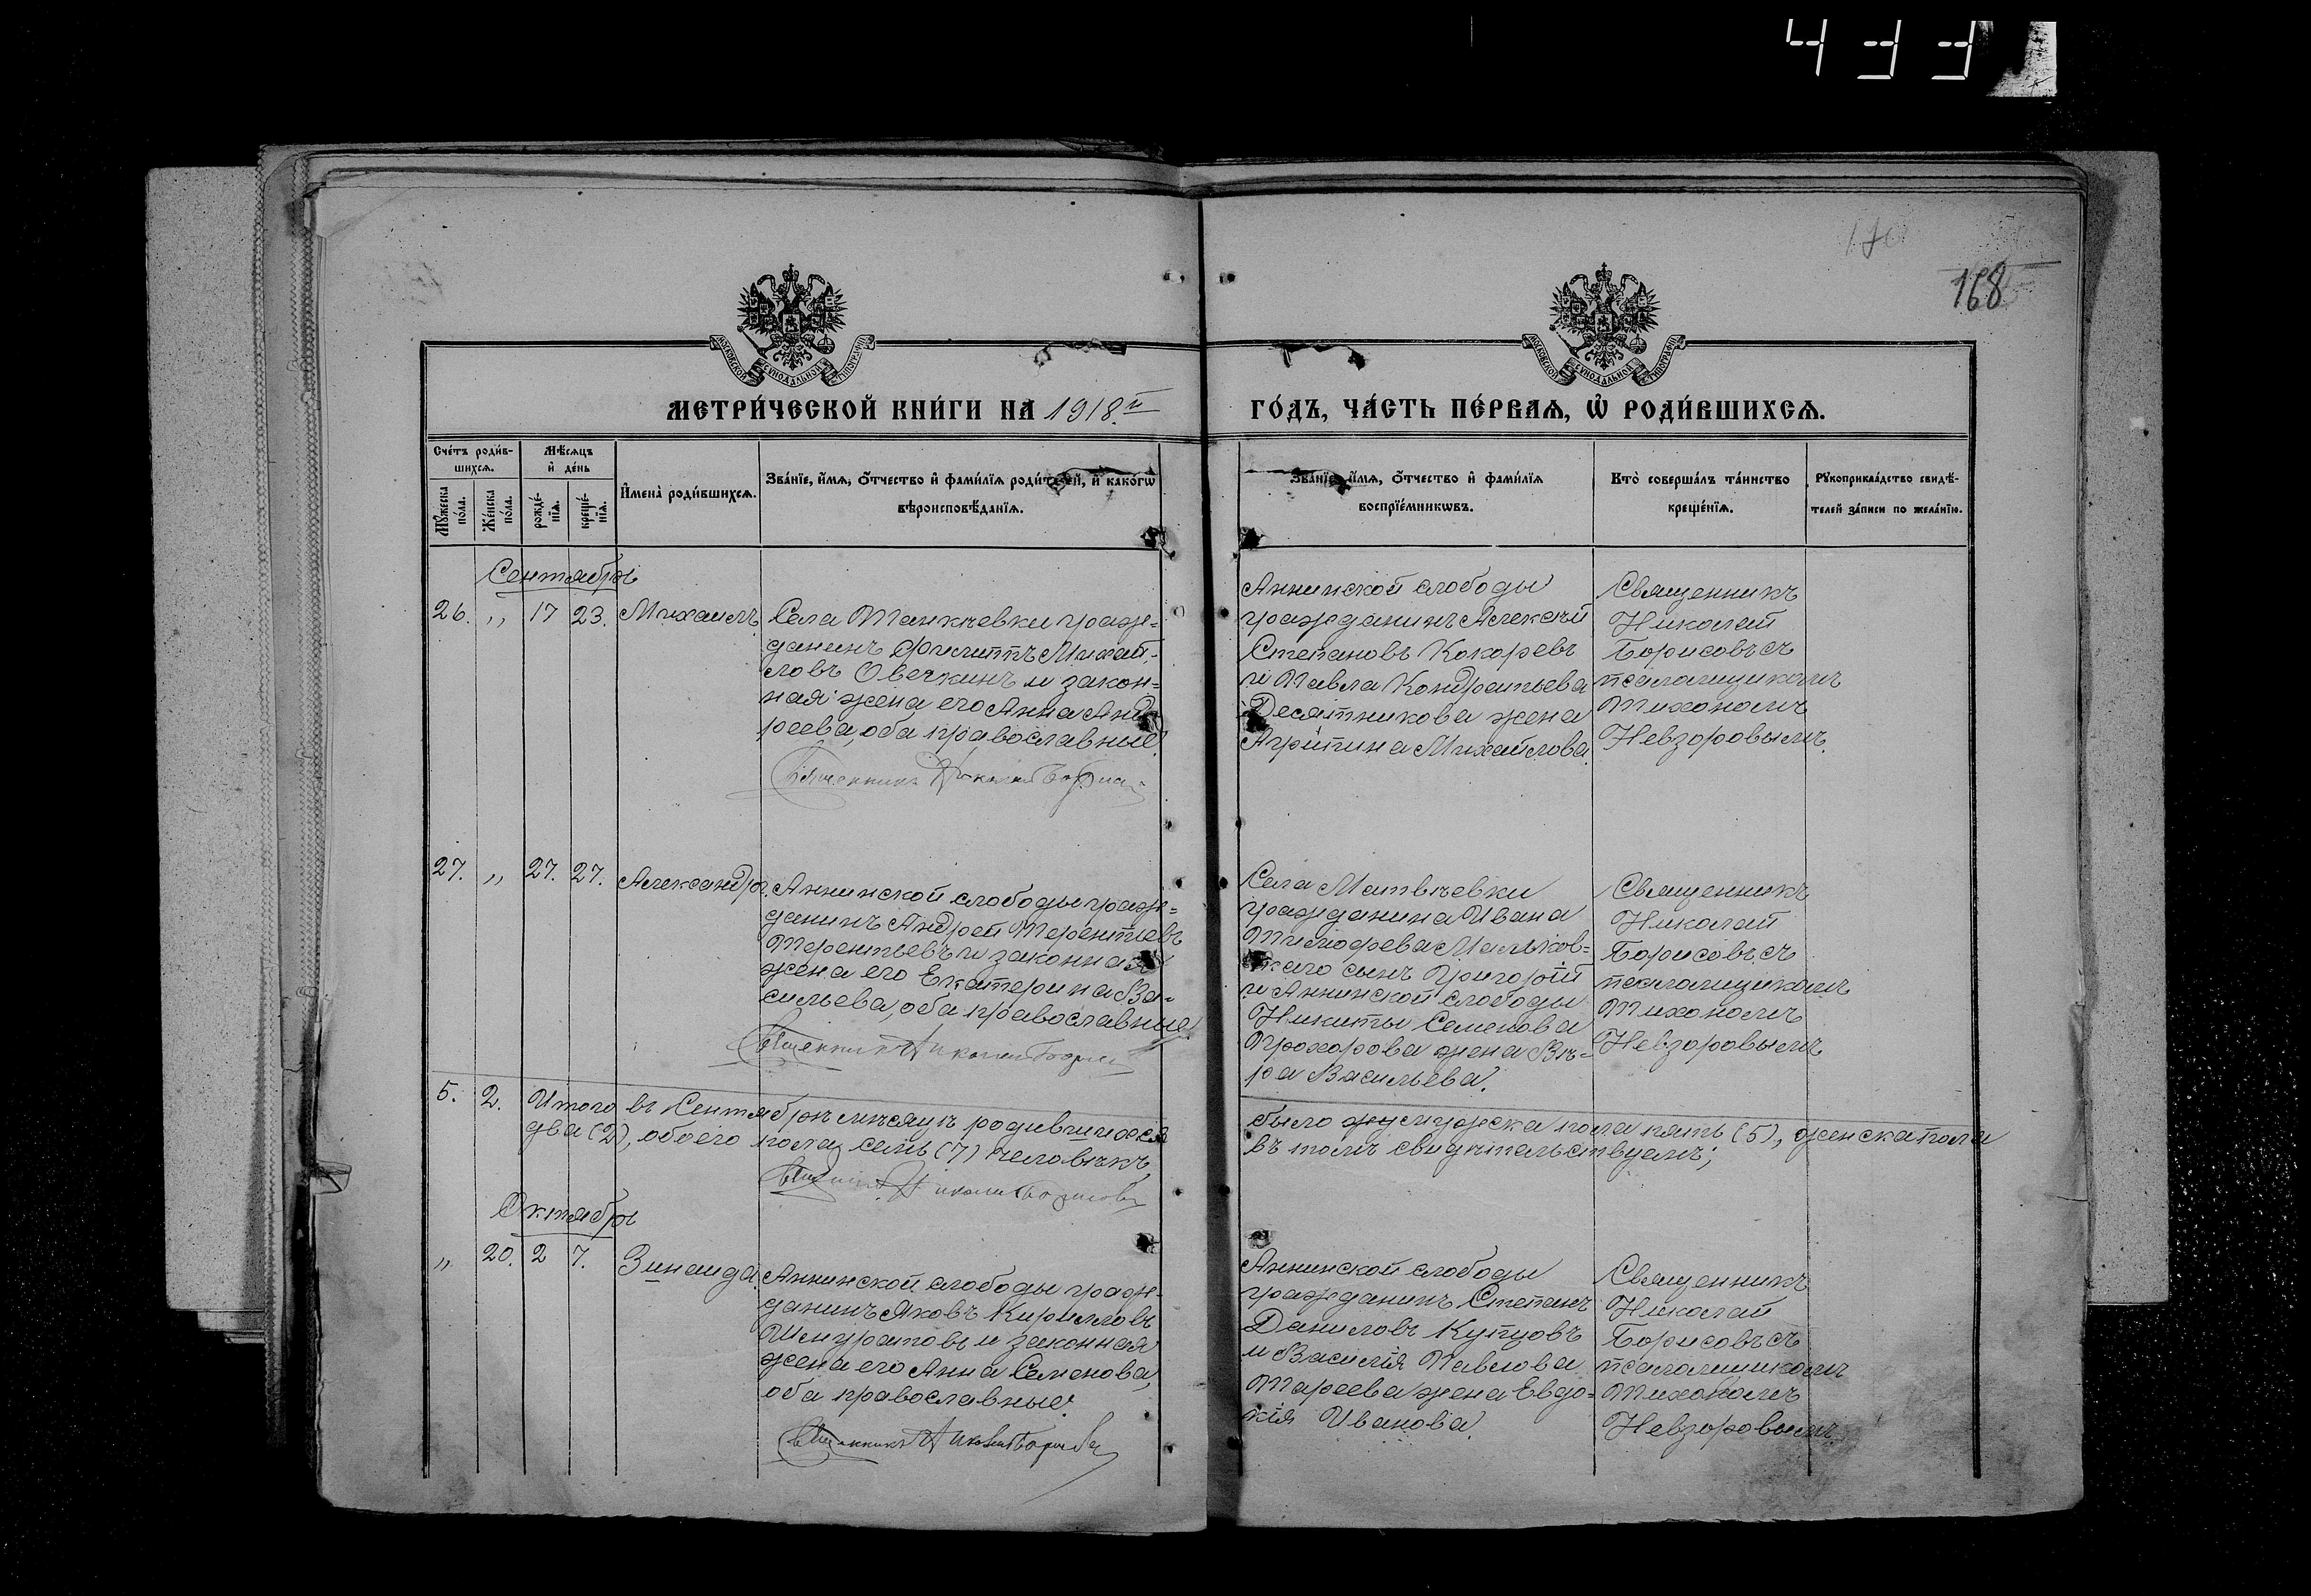 433
170
168
МОСКОВСКОЙ СУНОДАЛЬНОЙ ТИПОГРАФІИ
МОСКОВСКОЙ СУНОДАЛЬНОЙ ТИПОГРАФІИ
МЕТРИ́ЧЕСКОЙ КНИ́ГИ НА 1918.й
ГО́ДЪ, ЧА́СТЬ ПЕ́РВАѦ, Ѡ҆ РОДИ́ВШИХСѦ.
Сче́тъ роди́в-
шихсѧ.
Мѣ́сѧцъ
и҆ де́нь
Мꙋ́жеска
по́ла.
Же́нска
по́ла.
рожде́-
нїѧ.
креще́-
нїѧ.
И҆мена̀ роди́вшихсѧ.
Зва́нїе, и҆́мѧ, ѻ҆́тчество и҆ фами́лїѧ роди́телей, и҆ како́гѡ
вѣроисповѣ́данїѧ.
Зва́нїе, и҆́мѧ, ѻ҆́тчество и҆ фами́лїѧ
воспрїе́мникѡвъ.
Кто̀ соверша́лъ та́инство
креще́нїѧ.
Рꙋкоприкла́дство свидѣ́-
телей за́писи по жела́нїю.
Сентябрь
26. „ 17 23. Михаилъ
Села Танкѣевки граж=
данинъ Филиппъ Михай=
ловъ Овечкинъ и закон=
ная жена его Анна Анд
реева, оба православные.
Священникъ Николай Борисов
Аннинской слободы
гражданинъ Алексѣй
Степановъ Кокоревъ
и Павла Кондратьева
Десятникова жена
Агрипина Михайлова.
Священникъ
Николай
Борисовъ съ
псаломщикомъ
Тихономъ
Невзоровымъ.
27. „ 27. 27. Александръ.
Аннинской слободы граж=
данинъ Андрей Терентьевъ
Терентьевъ и законная
жена его Екатерина Ва=
сильева, оба православные.
Священникъ Николай Борисов
Села Матвѣевки
гражданина Ивана
Тимофеева Мальков=
скаго сынъ Григорій
и Аннинской слободы
Никиты Семенова
Прохорова жена Вѣ=
ра Васильева.
Священникъ
Николай
Борисовъ съ
псаломщикомъ
Тихономъ
Невзоровымъ
5. 2. Итого въ Сентябрѣ мѣсяцѣ родившихся было мужеска пола пять (5), женска пола
два (2), обоего пола семь (7) человѣкъ, въ томъ свидѣтельствуемъ;
Священникъ Николай Борисовъ
Октябрь
„ 20. 2 7. Зинаида.
Аннинской слободы граж-
данинъ Яковъ Кирилловъ
Шмуратовъ и законная
жена его Анна Семенова,
оба православные.
Священникъ Николай Борисовъ
Аннинской слободы
гражданинъ Степанъ
Даниловъ Купцовъ
и Василія Павлова
Тареева жена Евдо=
кія Иванова.
Священникъ
Николай
Борисовъ съ
псаломщикомъ
Тихономъ
Невзоровымъ.